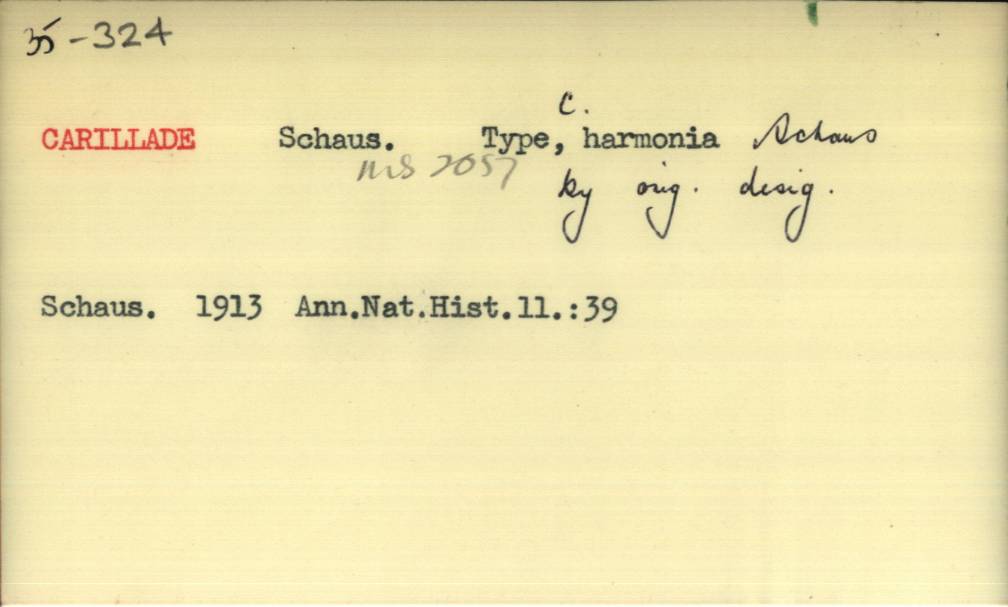 35-324
CARILLADE Schaus. Type, C. harmonia Schaus
MS 2057 by orig. desig.
Schaus. 1913 Ann.Nat.Hist.11.:39